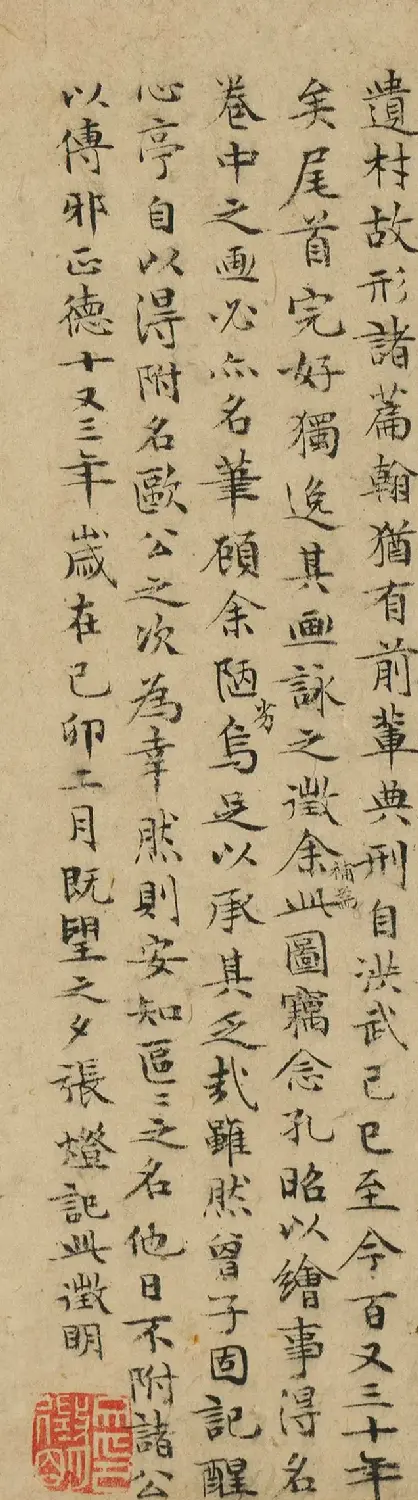 遺材故形諸篇翰猶有前輩典刑自洪武己巳至今百又三十年
矣尾首完好獨逸其画詠之徵余補為此圖竊念孔昭以繪事得名
卷中之画必亦名筆顧余陋劣烏足以承其乏哉雖然曾子固記醒
心亭自以得附名歐公之次為幸然則安知區〻之名他日不附諸公
以傳邪正德十又三年歲在己卯二月既望之夕張燈記此徵明